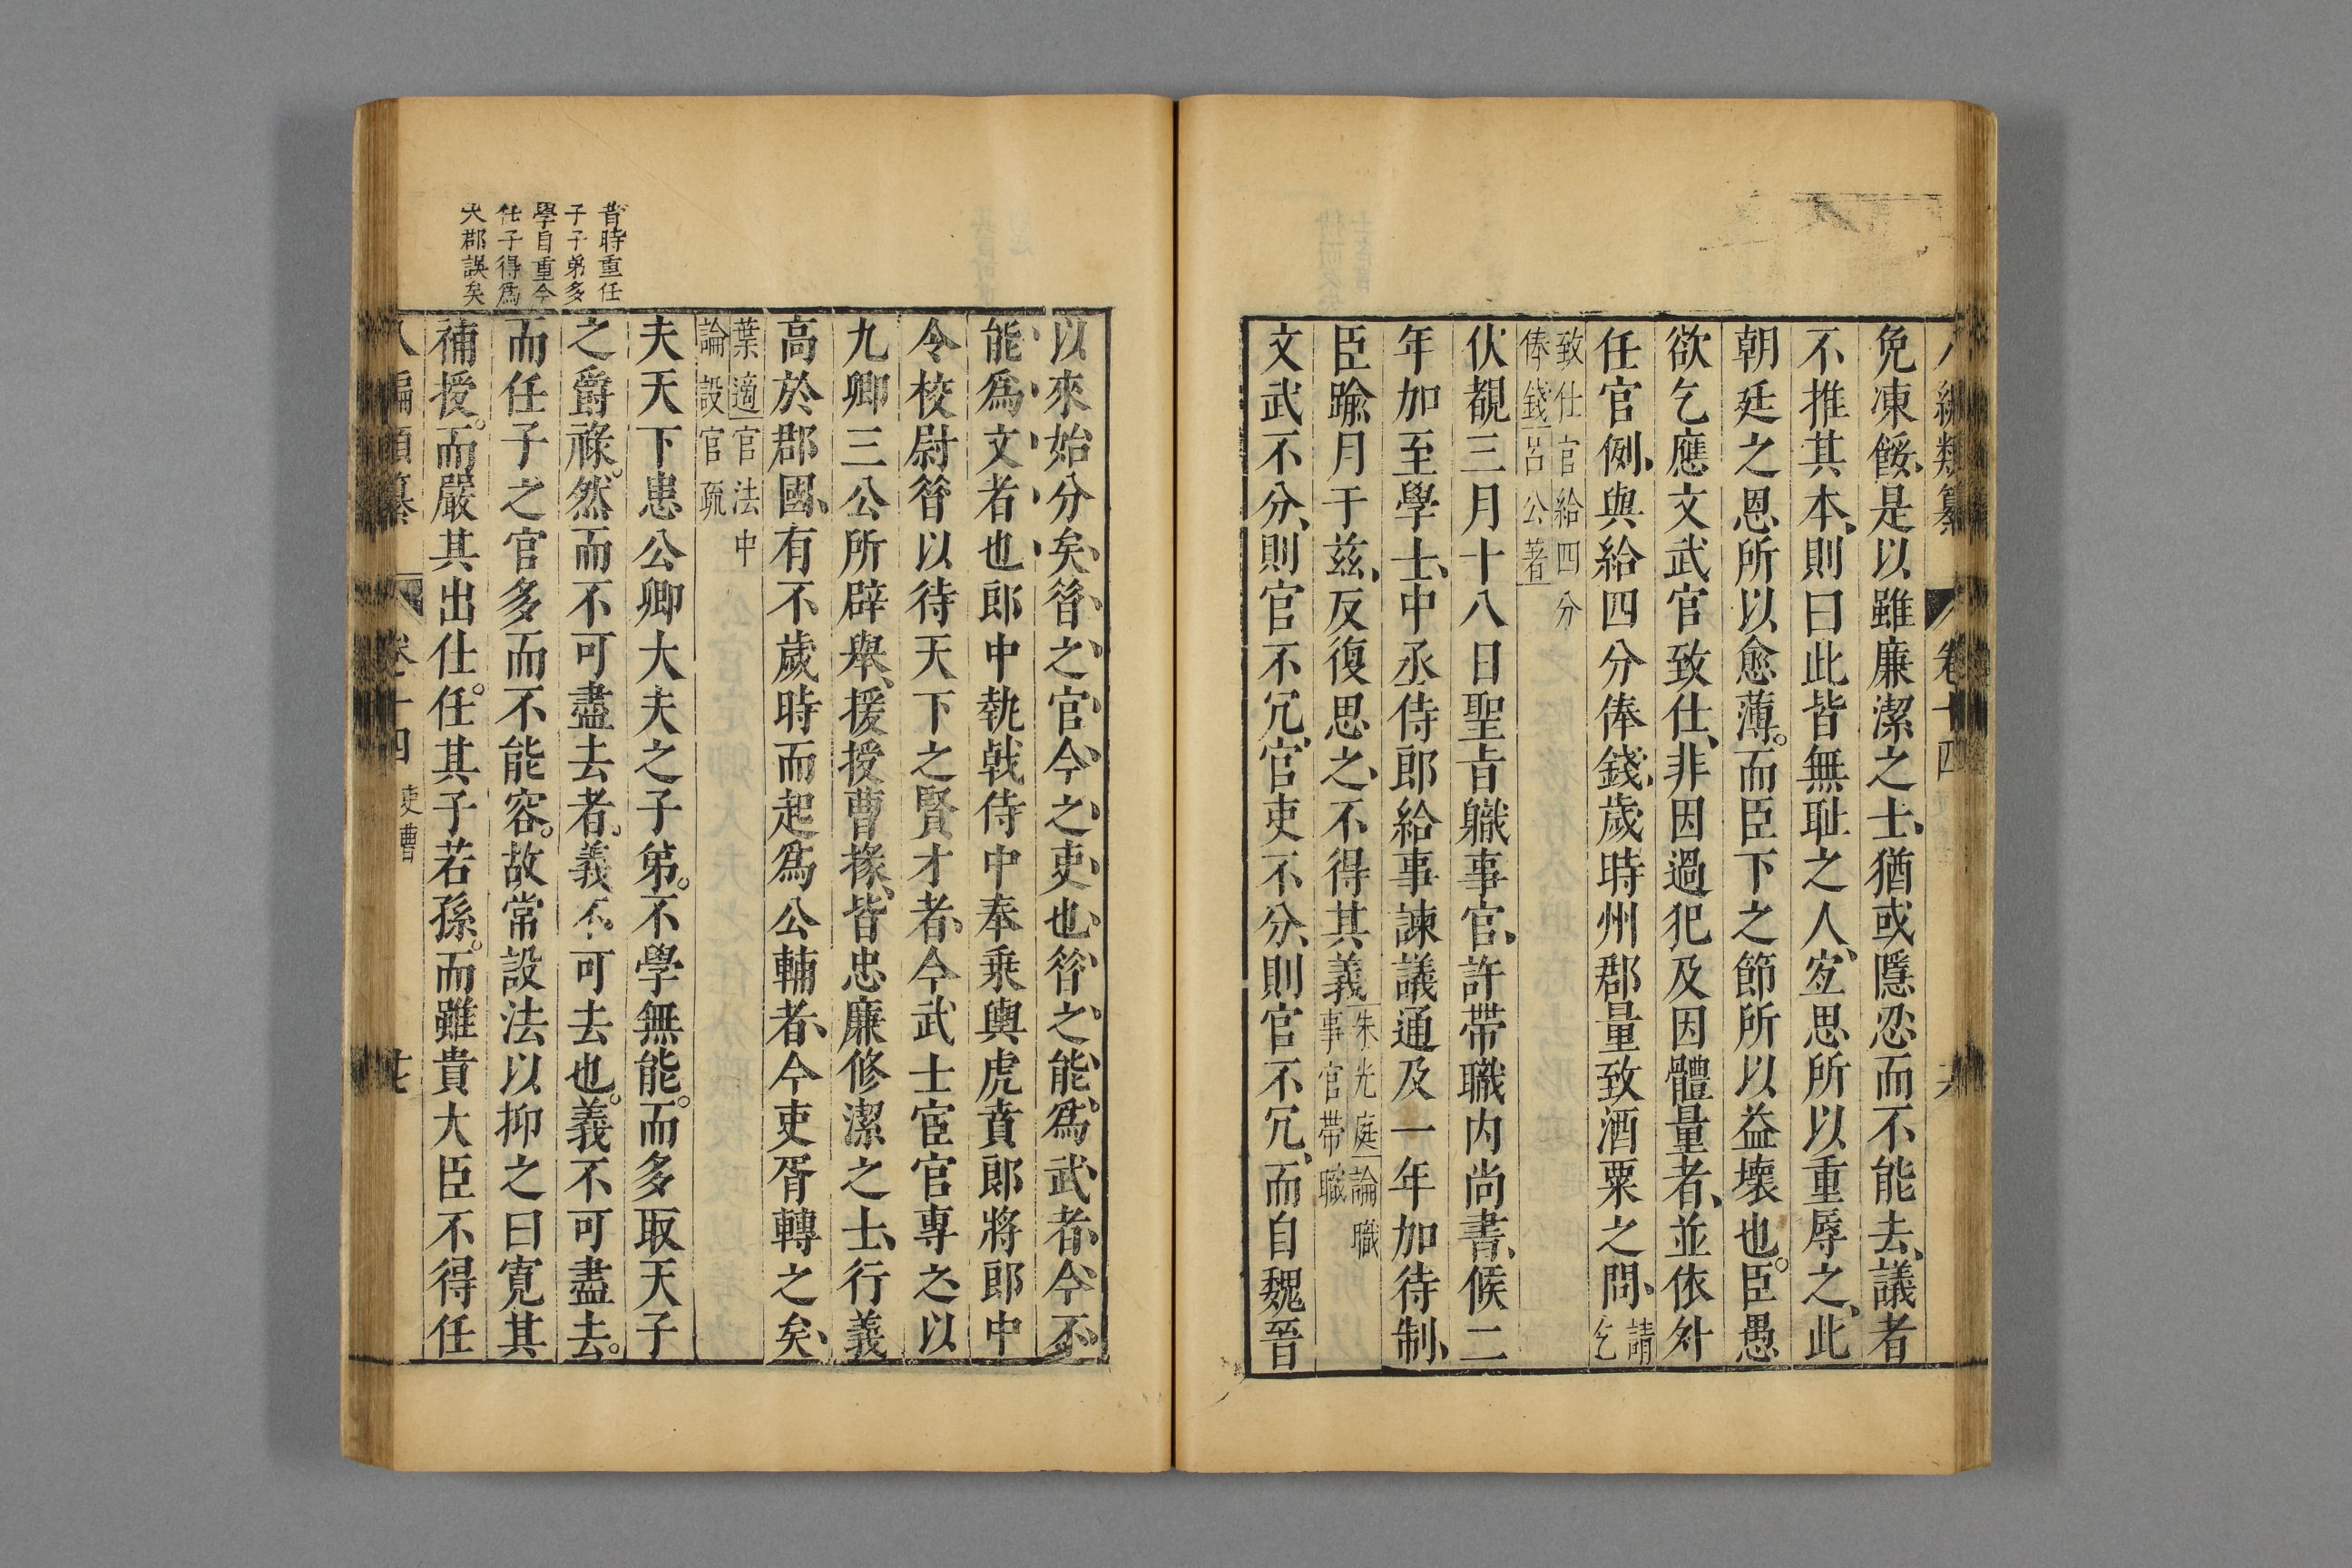 八編類纂 卷十四 六
免凍餒、是以雖廉潔之士、猶或隱忍而不能去、議者
不推其本、則曰此皆無耻之人、宐思所以重辱之、此
朝廷之恩所以愈薄。而臣下之節所以益壞也。臣愚
欲乞應文武官致仕、非因過犯及因體量者、並依外
任官例、與給四分俸錢、歲時州郡量致酒粟之問、請乞
致仕官給四分
俸錢呂公著
伏覩三月十八日聖旨職事官、許帶職内尚書、候二
年加至學士、中丞侍郎給事諫議通及一年加待制、
臣踰月于兹、反復思之、不得其義朱光庭論職事官帶職
文武不分、則官不冗、官吏不分、則官不冗、而自魏晉
以來始分矣、昝之官、今之吏也、昝之能爲武者、今不
能爲文者也郎中執戟侍中奉乗輿虎賁郎將郎中
令校尉昝以待天下之賢才者、今武士宦官專之以
九卿三公所辟舉、援授曹掾、皆忠廉修潔之士、行義
高於郡國、有不歲時而起爲公輔者、今吏胥轉之矣、
葉適官法中
論設官疏
昔時重任
子子弟多
學自重今
任子得爲
大郡誤矣
夫天下患公卿大夫之子弟。不學無能。而多取天子
之爵祿。然而不可盡去者。義不可去也。義不可盡去。
而任子之官多而不能容。故常設法以抑之曰寛其
補授。而嚴其出仕。任其子若孫。而雖貴大臣不得任
八編類纂 卷十四 吏曹 廿七